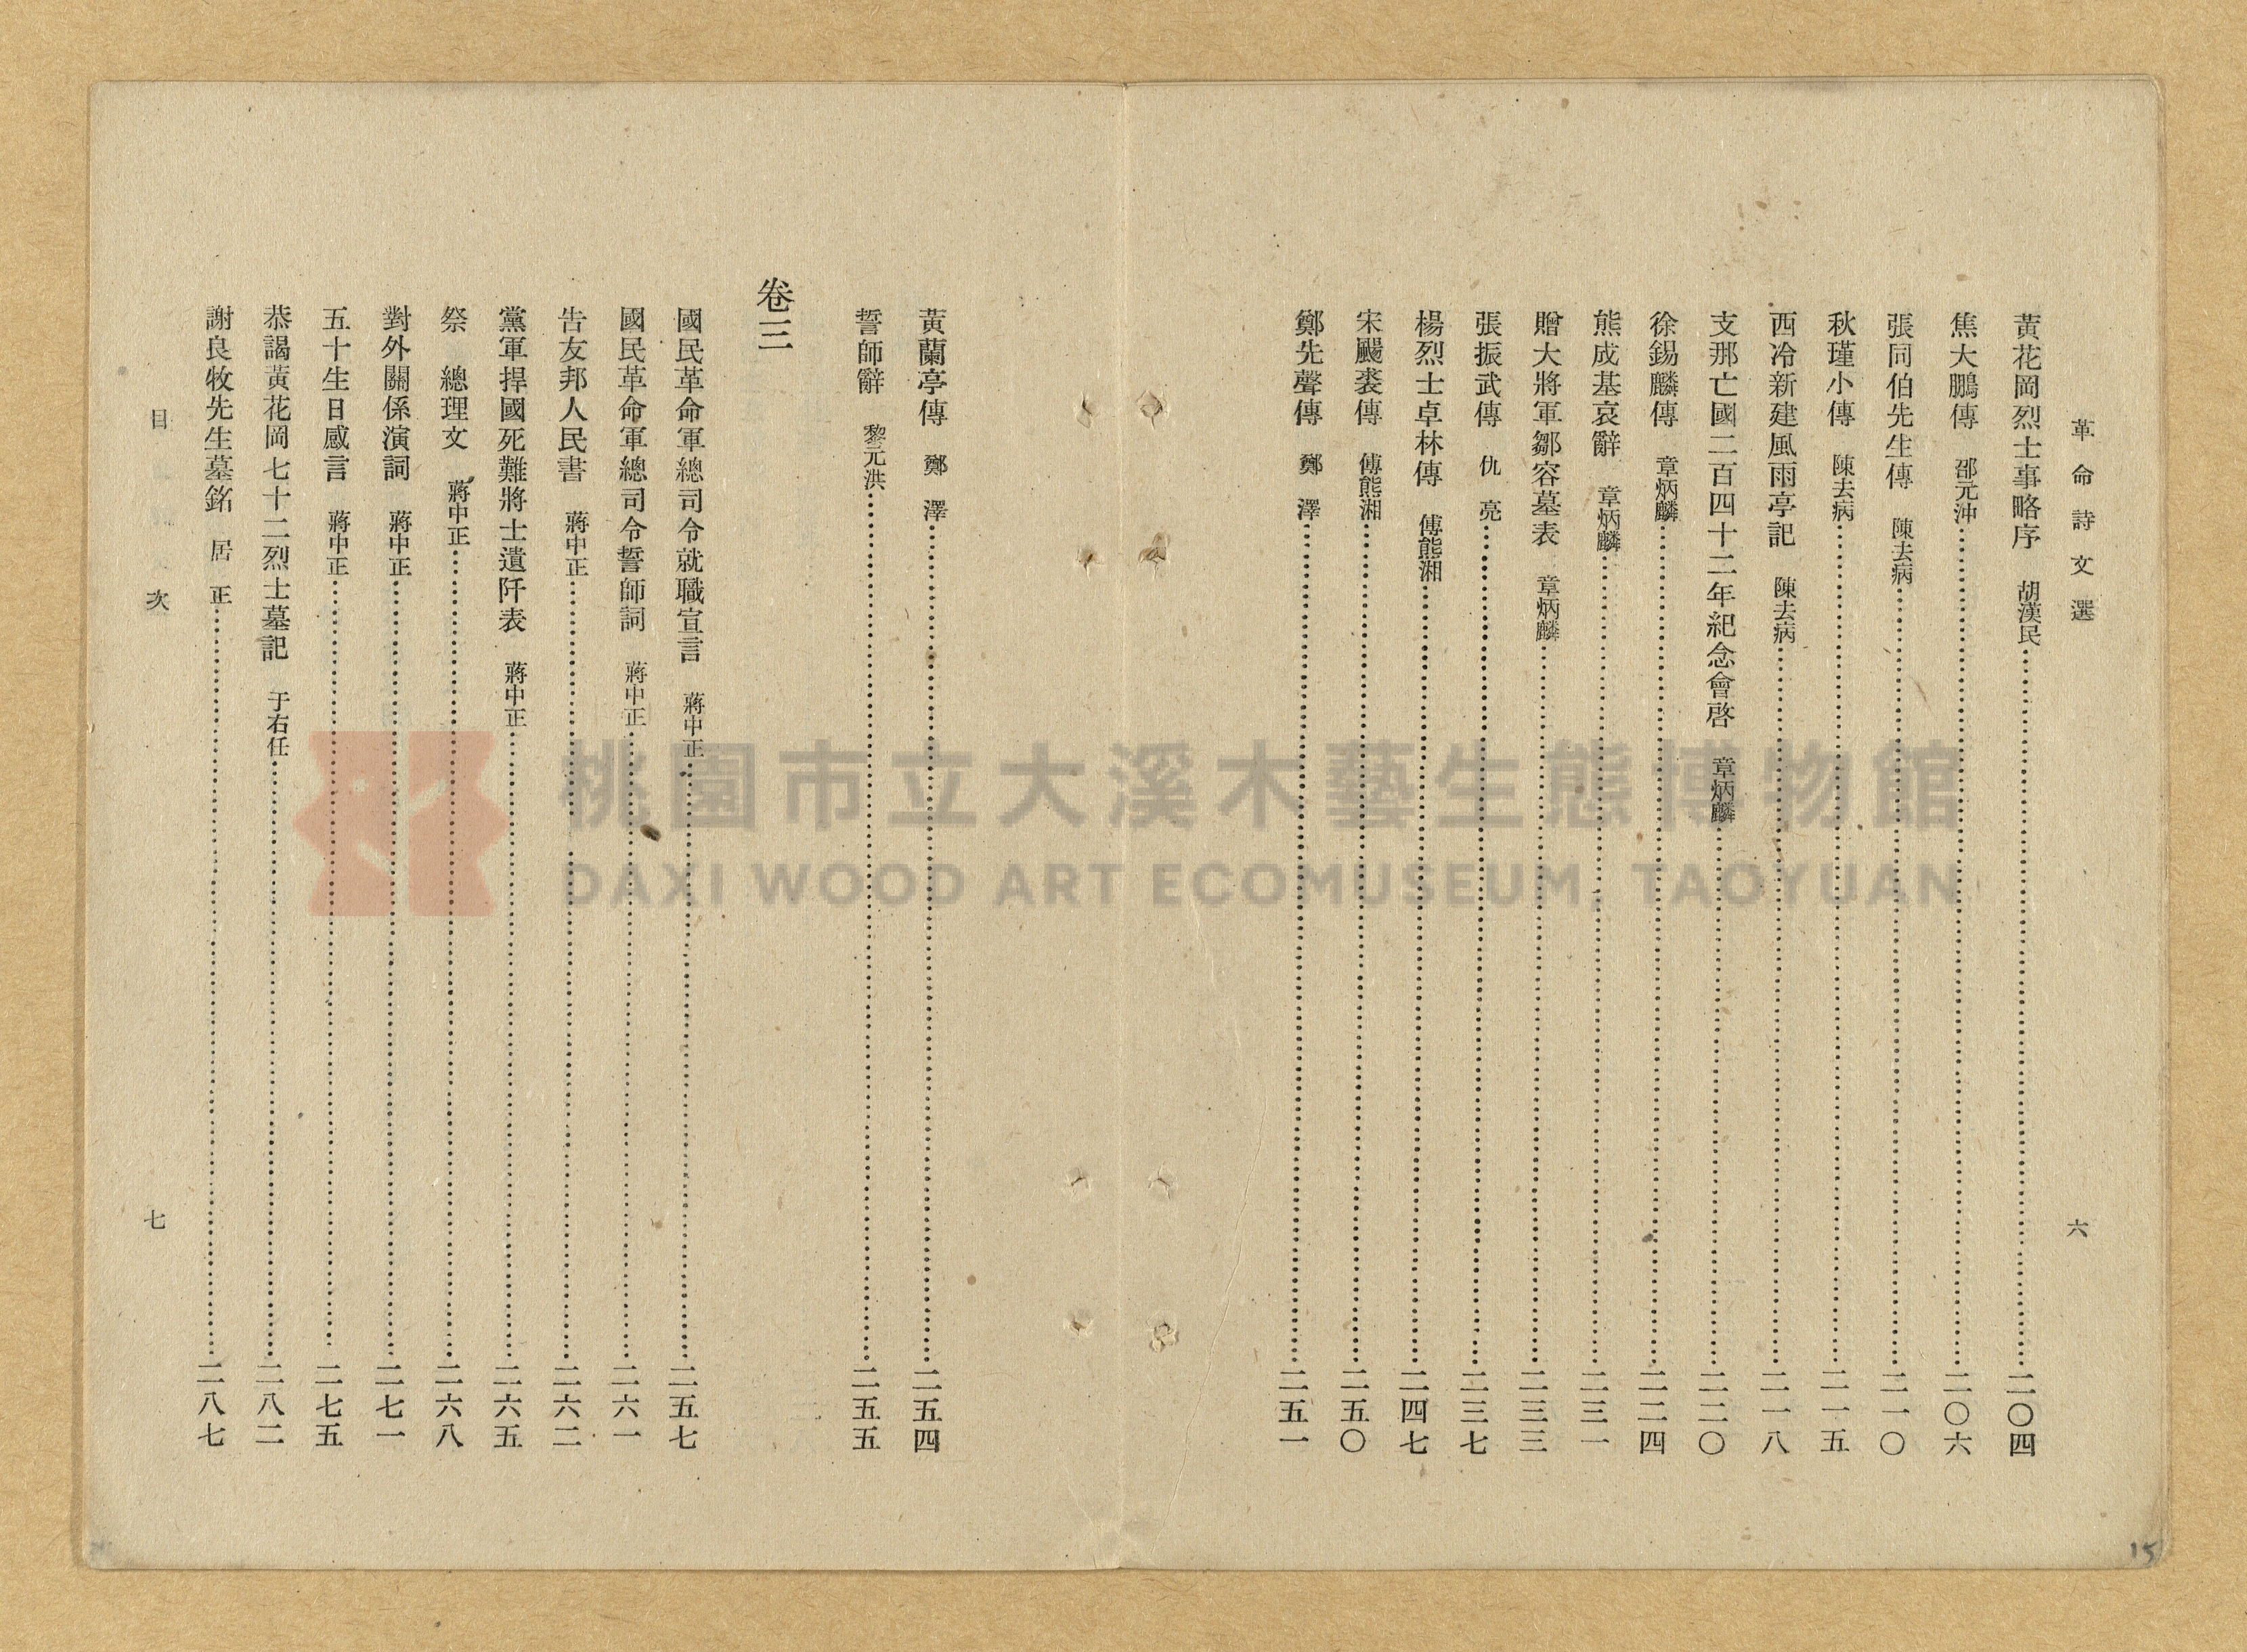 革命詩文選
六
黃花岡烈士事略序　胡漢民……二〇四
焦大鵬傳　邵元沖……二〇六
張同伯先生傳　陳去病……二一〇
秋瑾小傳　陳去病……二一五
西冷新建風雨亭記　陳去病……二一八
支那亡國二百四十二年紀念會啓　章炳麟……二二〇
徐錫麟傳　章炳麟……二二四
熊成基哀辭　章炳麟……二三一
贈大將軍鄒容墓表　章炳麟……二三三
張振武傳　仇　亮……二三七
楊烈士卓林傳　傅熊湘……二四七
宋颺裘傳　傅熊湘……二五〇
鄭先聲傳　鄭　澤……二五一
黃蘭亭傳　鄭　澤……二五四
誓師辭　黎元洪……二五五
卷三
國民革命軍總司令就職宣言　蔣中正……二五七
國民革命軍總司令誓師詞　蔣中正……二六一
告友邦人民書　蔣中正……二六二
黨軍捍國死難將士遺阡表　蔣中正……二六五
祭　總理文　蔣中正……二六八
對外關係演詞　蔣中正……二七一
五十生日感言　蔣中正……二七五
恭謁黃花岡七十二烈士墓記　于右任……二八二
謝良牧先生墓銘　居　正……二八七
目次
七
桃園市立大溪木藝生態博物館
DAXI WOOD ART ECOMUSEUM, TAOYUAN
15